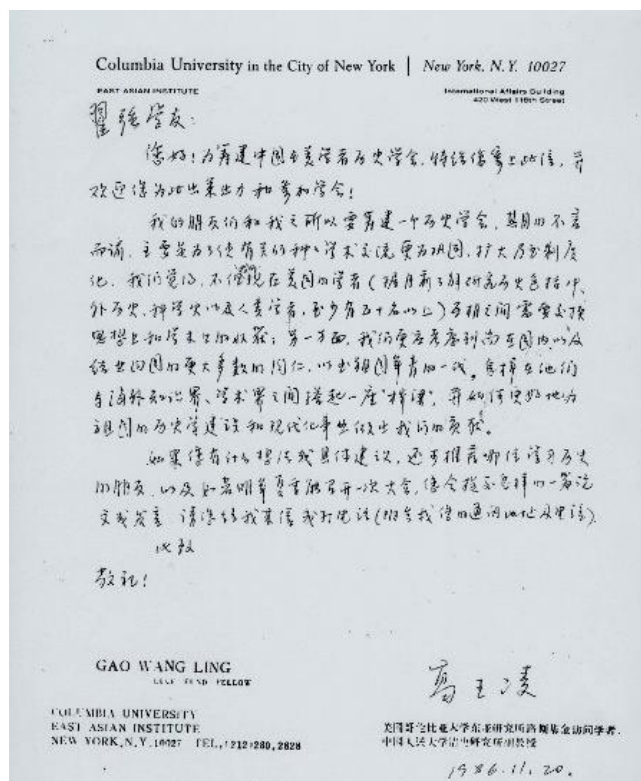 Columbia University in the City of New York | New York, N.Y. 10027
EAST ASIAN INSTITUTE
International Affairs Building
420 West 118th Street
翟强学友：
您好！为筹建中国留美学者历史学会，特给您写上此信，并
欢迎您为此出来出力和参加学会！
我的朋友们和我之所以要筹建一个历史学会，其目的不言
而喻，主要是为了使有关的种种学术交流更为巩固，扩大乃至制度
化。我们觉得，不仅现在美国的学者（据目前了解研究历史包括中、
外历史、科学史以及人类学者，至少有五十名以上）互相之间需要交换
思想上和学术上的收获；另一方面，我们更应考虑到尚在国内以及
结业回国的更大多数的同仁，以至祖国年青的一代。怎样在他们
与海外知识界、学术界之间搭起一座“桥梁”，并如何更好地为
祖国的历史学建设和现代化事业做出我们的贡献。
如果您有什么想法或具体建议，还可推荐哪位学习历史
的朋友，以及如若明年夏季能召开一次大会，您会提交怎样的一篇论
文或发言，请您给我来信或打电话（附去我的通讯地址及电话）。
此致
敬礼！
GAO WANG LING
LUCE FUND FELLOW
高王凌
COLUMBIA UNIVERSITY
EAST ASIAN INSTITUTE
NEW YORK,N.Y.10027 TEL,(212)280,2828
美国哥伦比亚大学东亚研究所路斯基金访问学者，
中国人民大学清史研究所副教授
1986.11.20.